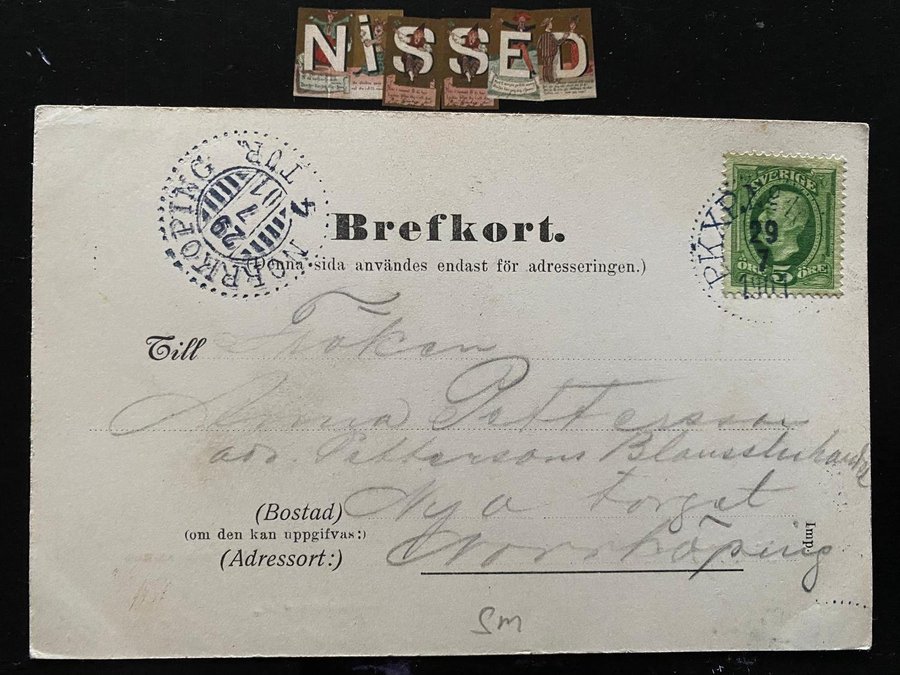 NISSED
Brefkort.
(Denna sida användes endast för adresseringen.)
NORRKÖPING 4 TUR
29 7 01
SVERIGE
5 ÖRE ÖRE
PKXP
29
7
1901
Till Fröken
Anna Pettersson
adr. Pettersons
Nya Torget
(Bostad)
(om den kan uppgifvas:)
(Adressort:) Norrköping
Imp.
Sm